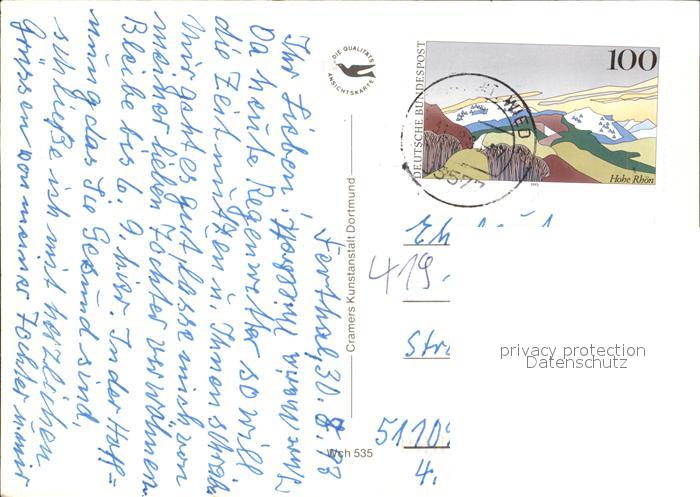 Ferthal, 30. 8. 93
Ihr Lieben!
Da heute Regenwetter so will
die Zeit nutzen u. Ihnen schreib
Mir geht es gut, lasse mich von
meiner lieben Tochter verwöhnen.
Bleibe bis 6. 9. hier. In der Hoff=
nung das Sie Gesund sind,
schließe ich mit herzlichen
Grüssen von meiner Tochter u. mir
DIE QUALITÄTS
ANSICHTSKARTE
Cramers Kunstanstalt Dortmund
Wch 535
DEUTSCHE BUNDESPOST
100
Hohe Rhön
1993
WIED
557
419
Str
5110
4.
privacy protection
Datenschutz